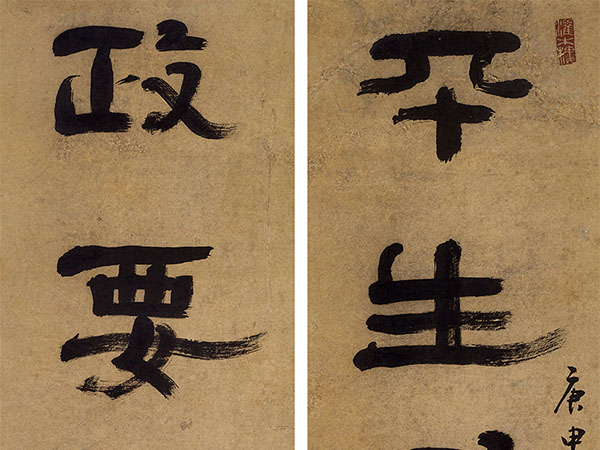 庚申
平生
政要